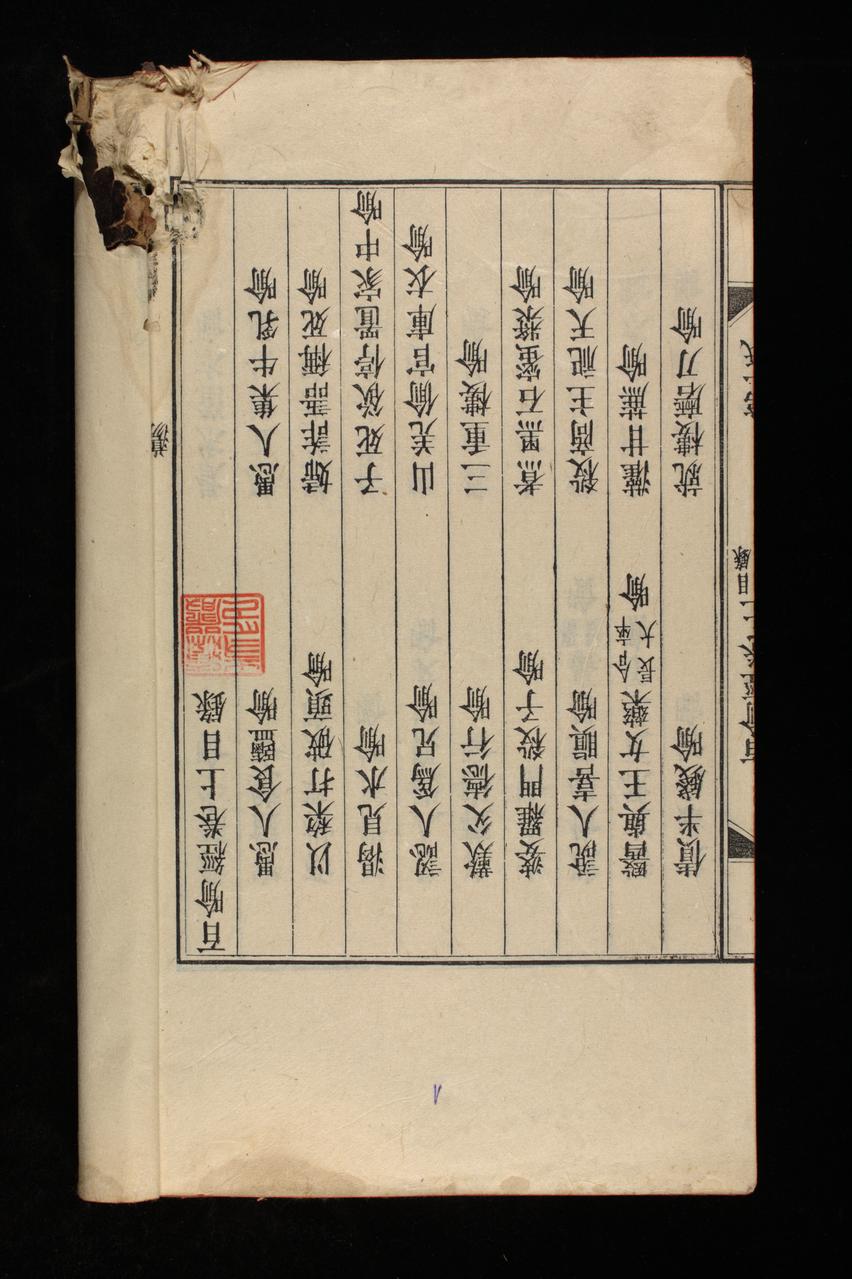 百喻經卷上目錄
愚人食鹽喻　愚人集牛乳喻
以棃打破頭喻　婦詐語稱死喻
渴見水喻　子死欲停置家中喻
認人爲兄喻　山羌偷官庫衣喻
歎父德行喻　三重樓喻
婆羅門殺子喻　煮黑石蜜漿喻
說人喜瞋喻　殺商主祀天喻
醫與王女藥令卒長大喻　灌甘蔗喻
債半錢喻　就樓磨刀喻
百喻經卷上目錄